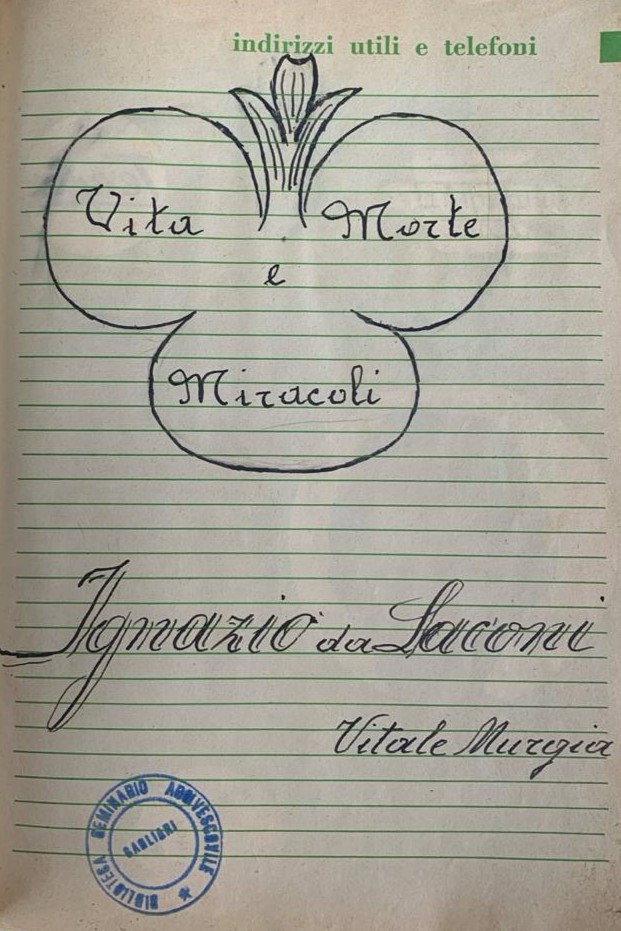 indirizzi utili e telefoni
Vita Morte
e
Miracoli
Ignazio da Laconi
Vitale Murgia
BIBLIOTECA SEMINARIO ARCIVESCOVILE
CAGLIARI